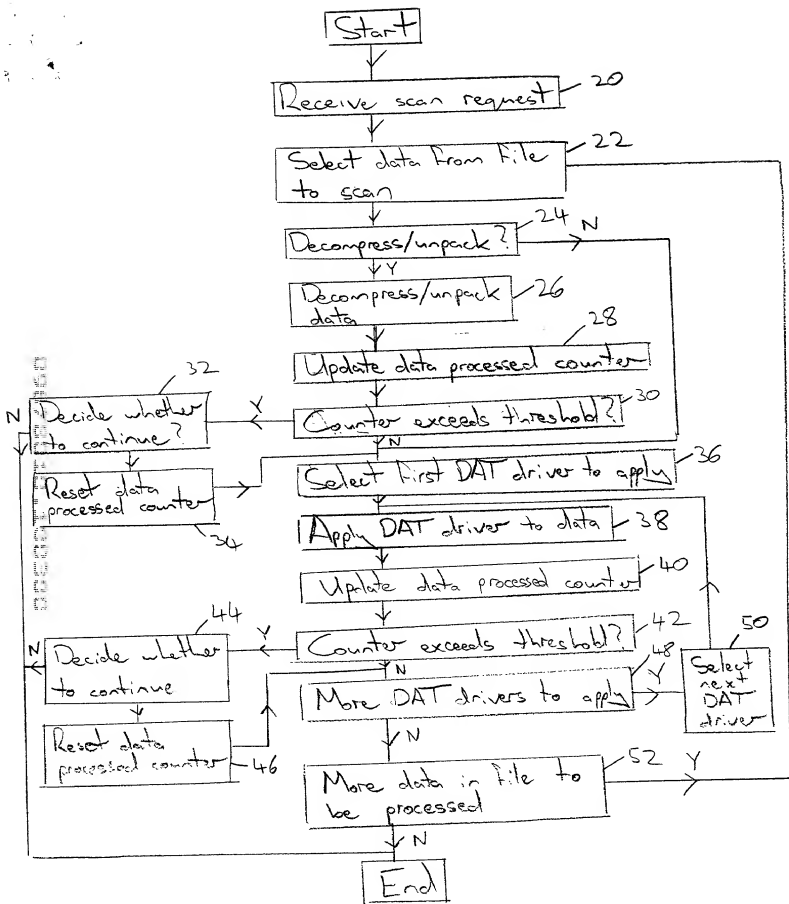 Start
Receive scan request
20
Select data from file
to scan
22
Decompress/unpack?
24
N
Y
Decompress/unpack
data
26
28
Update data processed counter
32
Counter exceeds threshold?
30
Y
N
Decide whether
to continue?
N
Reset data
processed counter
34
Select first DAT driver to apply
36
Apply DAT driver to data
38
Update data processed counter
40
44
Counter exceeds threshold?
42
Y
N
Decide whether
to continue
N
Reset data
processed counter
46
48
More DAT drivers to apply
Y
N
50
Select
next
DAT
driver
More data in file to
be processed
52
Y
N
End